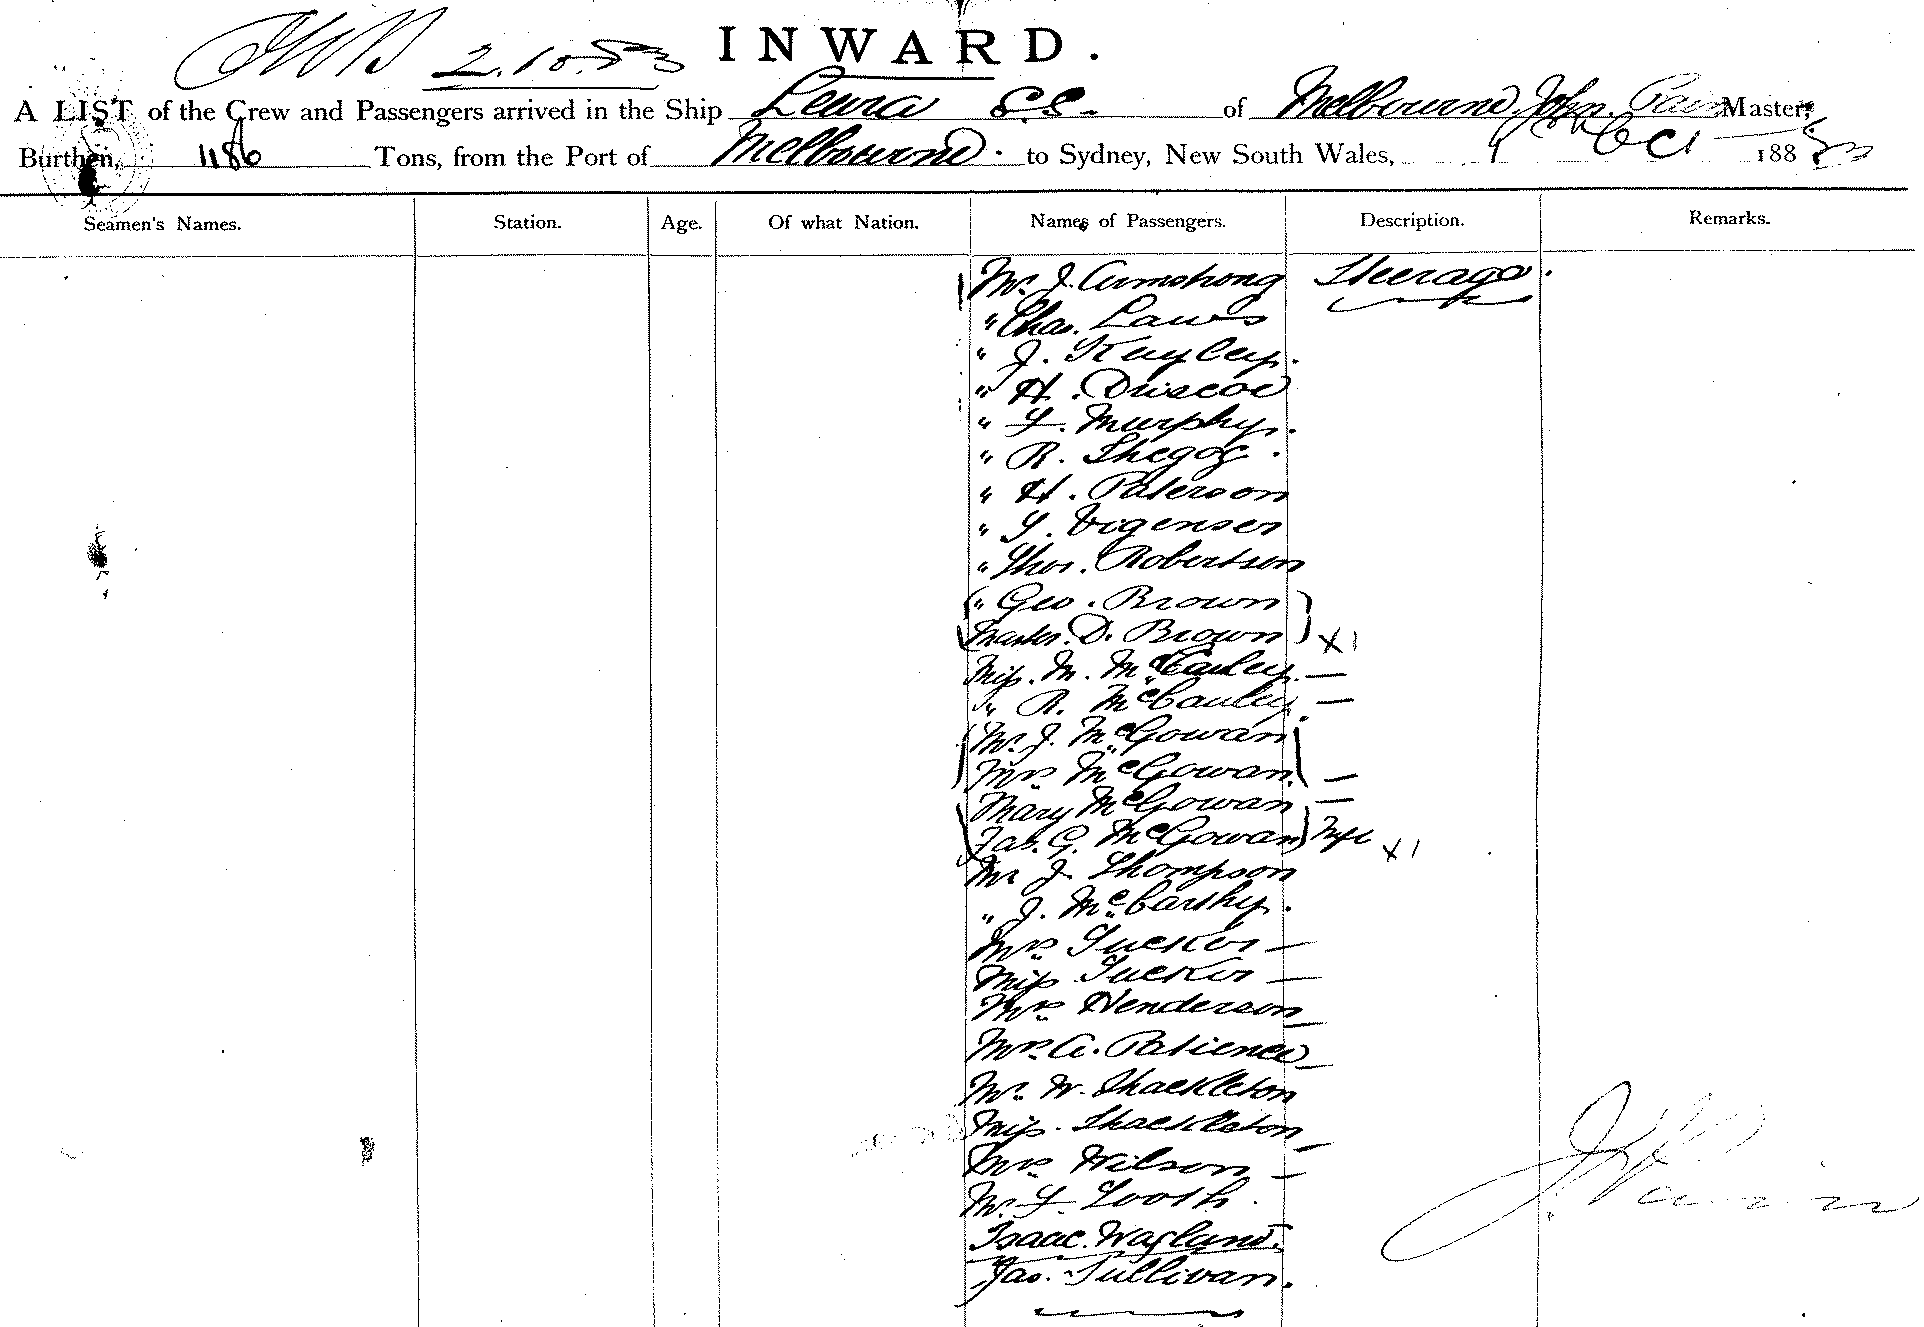 2.10.83 INWARD.
A LIST of the Crew and Passengers arrived in the Ship Leura S.S. of Melbourne, John Pain Master,
Burthen, 1186 Tons, from the Port of Melbourne to Sydney, New South Wales, Oct 1883
Seamen's Names. Station. Age. Of what Nation. Names of Passengers. Description. Remarks.
Mr. J. Armstrong Steerage.
" Chas. Laws
" J. Kayley.
" H. Driscoe
" F. Murphy.
" R. Shegog.
" H. Paterson
" Vigensen
" Thos. Robertson
" Geo. Brown
Master. D. Brown X 1
Miss. M. McCauley —
" R. McCauley —
Mr. J. McGowan
Mrs McGowan. —
Mary McGowan —
Jas. G. McGowan X 1
Mr J. Thompson
" J. McCarthy.
Mrs Tucker —
Miss Tucker —
Mrs Henderson —
Mrs. A. Patience —
Mr. W. Shackleton
Miss. Shackleton —
Mrs Wilson —
Mr. F. Tooth.
Isaac. Wayland.
Jas. Sullivan.